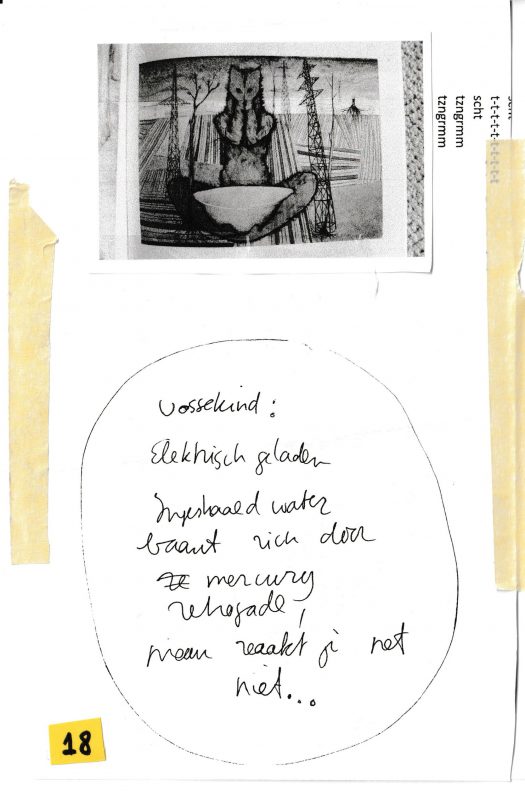 scht
t-t-t-t-t-t-t-t-t
tzngrmm
tzngrmm
vossekind:
Elektrisch geladen
water
baant zich door
mercury
retrograde,
maar raakt je net
niet...
18